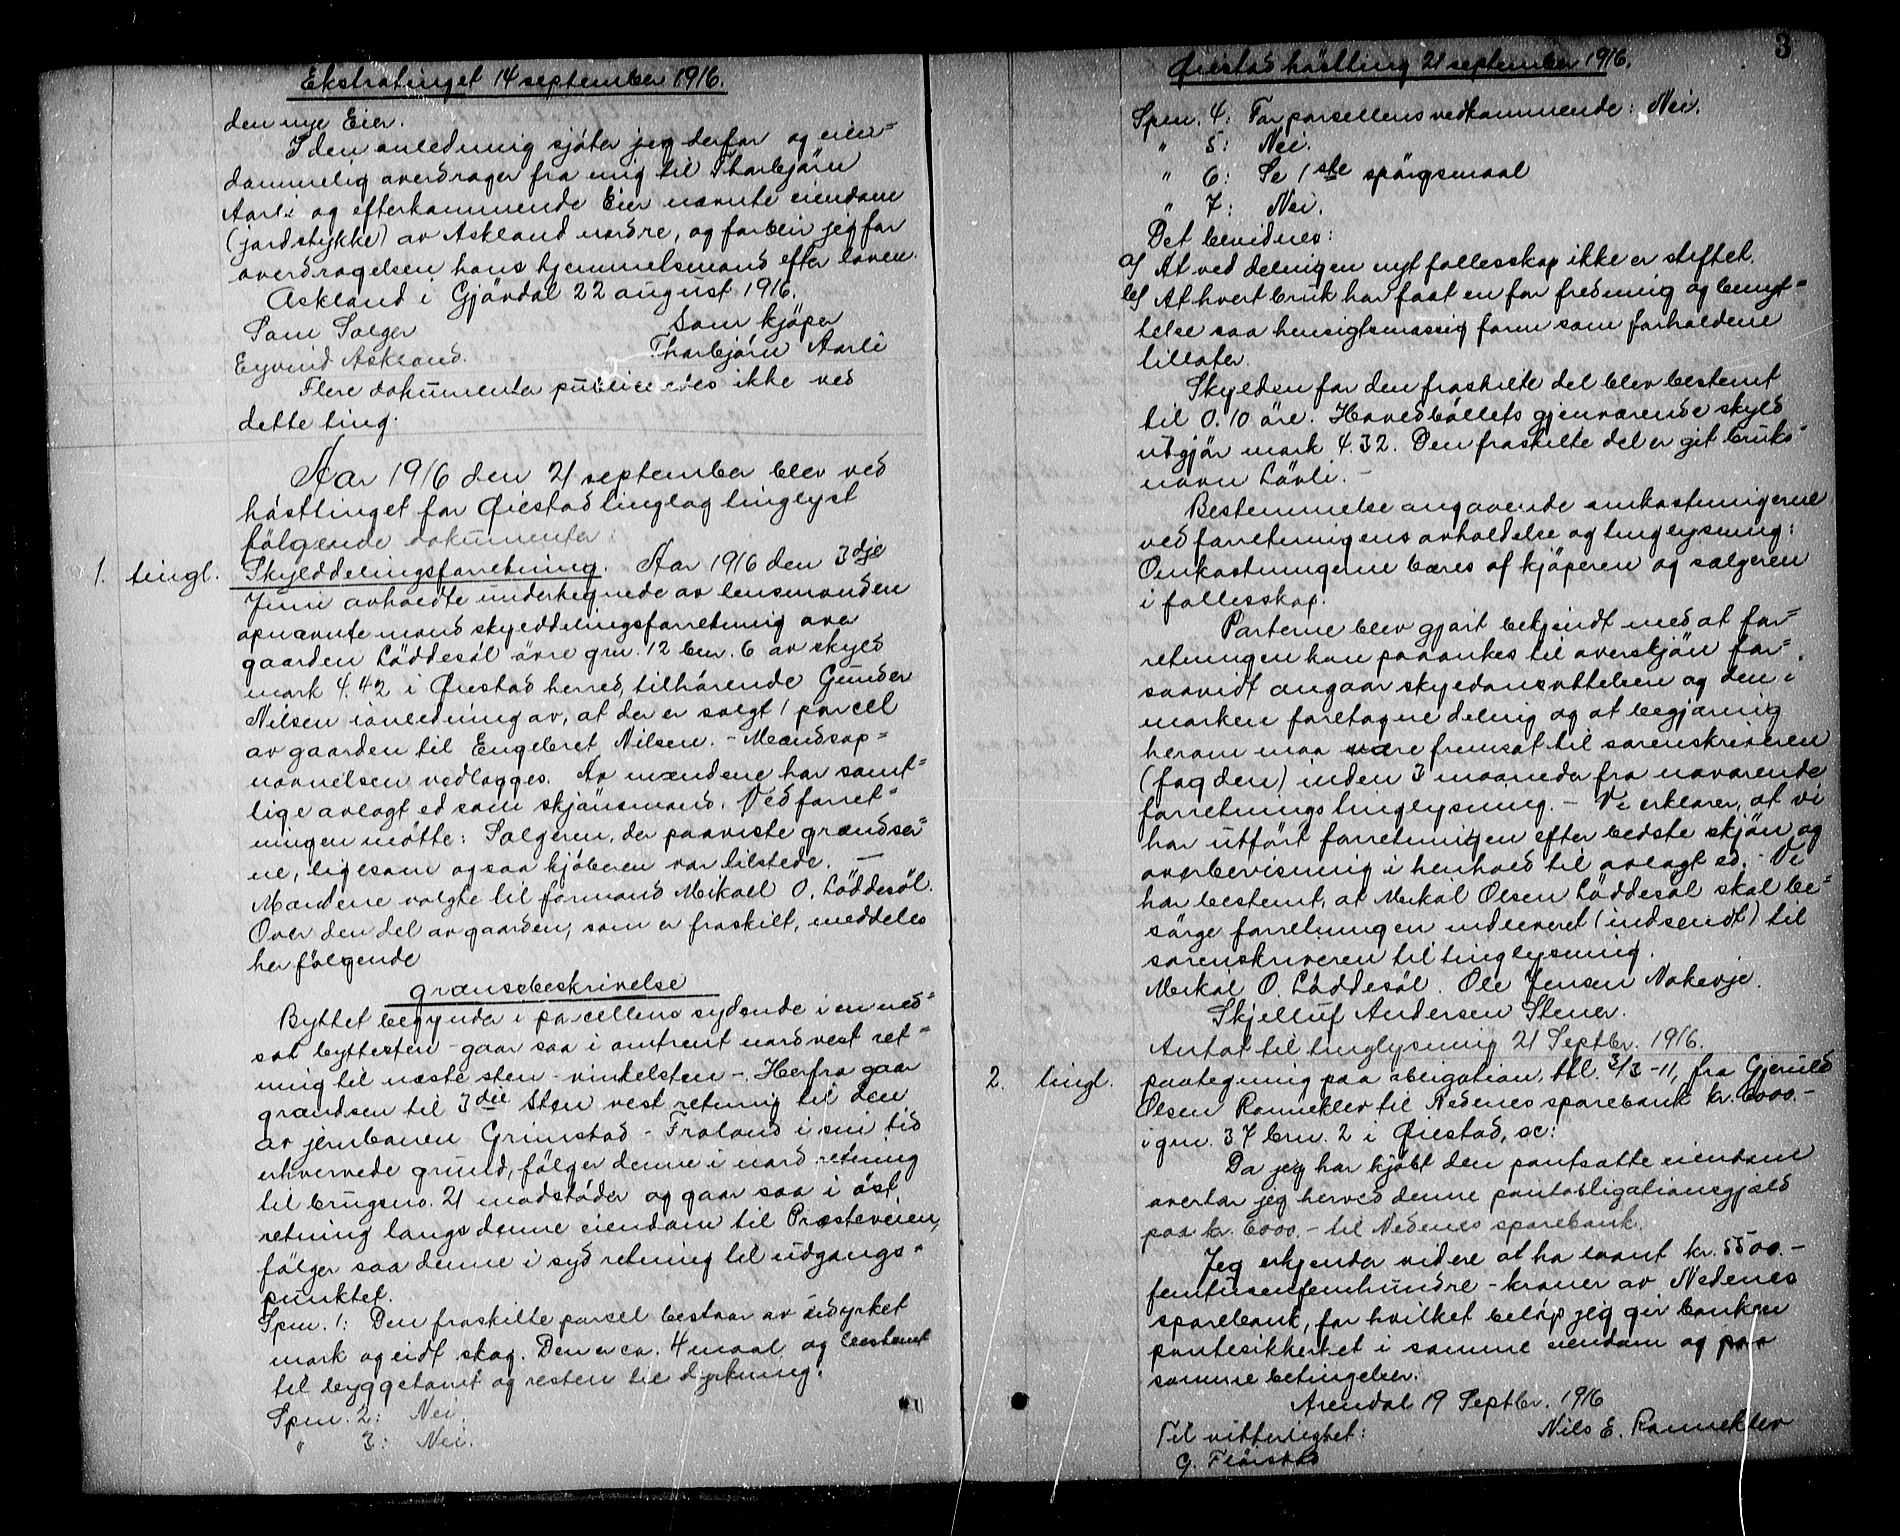 Ekstratinget 14 september 1916.
den nye Eier.
I den anledning sjøter jeg derfor og eien=
dommelig overdrager fra mig til Thorbjørn
Aarli og efterkommende Eier nævnte eiendom
(jordstykke) av Askland nordre, og forblir jeg for
overdragelsen hans hjemmelsmand efter loven.
Askland i Gjøvdal 22 august 1916.
Som Sælger
Som kjøper
Eyvind Askland.
Thorbjørn Aarli
Flere dokumenter publiceredes ikke ved
dette ting.
Aar 1916 den 21 september blev ved
høsttinget for Øiestad tinglag tinglyst
følgende dokumenter:
1. tingl. Skylddelingsforretning. Aar 1916 den 3dje
Juni avholdte undertegnede av lensmanden
opnævnte mænd skylddelingsforretning over
gaarden Løddesøl øvre gnr. 12 bnr. 6 av skyld
mark 4.42 i Øiestad herred, tilhørende Gunder
Nilsen i anledning av, at der er solgt 1 parcel
av gaarden til Engebret Nilsen. - Mændsop=
nævnelsen vedlægges. Av mændene har samt=
lige avlagt ed som skjønsmænd. Ved forret=
ningen møtte: Sælgeren, der paaviste grændser=
ne, ligesom ogsaa kjøberen var tilstede. —
Mændene valgte til formand Mikael O. Løddesøl.
Over den del av gaarden, som er fraskilt, meddeles
her følgende
grænsebeskrivelse
Byttet begynder i parcellens sydende i en ned=
sat byttesten - gaar saa i omtrent nordvest ret=
ning til næste sten - vinkelsten -. Herfra gaar
grændsen til 3die sten vest retning til den
av jernbanen Grimstad - Froland i sin tid
erhvervede grund, følger denne i nord retning
til brugsno. 21 modstøder og gaar saa i øst
retning langs denne eiendom til Præsteveien,
følger saa denne i syd retning til udgangs=
punktet.
Spm. 1: Den fraskilte parcel bestaar av udyrket
mark og lidt skog. Den er ca. 4 maal og bestemt
til byggetomt og resten til dyrkning.
Spm. 2: Nei.
" 3: Nei.
Øiestad høstting 21 september 1916.
3
Spm. 4: For parsellens vedkommende: Nei.
" 5: Nei.
" 6: Se 1ste spørgsmaal
" 7: Nei.
Det bevidnes:
a) At ved delingen nyt fællesskap ikke er stiftet.
b) At hvert bruk har faat en for fredning og benyt=
telse saa hensigtsmæssig form som forholdene
tillater.
Skylden for den fraskilte del blev bestemt
til 0.10 øre. Hovedbøllets gjenværende skyld
utgjør mark 4.32. Den fraskilte del er git bruks=
navn Løvli. —
Bestemmelse angaaende omkostningerne
ved forretningens avholdelse og tinglysning:
Omkostningerne bæres af kjøperen og sælgeren
i fællesskap.
Parterne blev gjort bekjendt med at for=
retningen kan paaankes til overskjøn for=
saavidt angaar skyldansættelsen og den i
marken foretagne deling og at begjæring
herom maa være fremsat til sorenskriveren
(fogden) inden 3 maaneder fra nærværende
forretnings tinglysning. — Vi erklærer, at vi
har utført forretningen efter bedste skjøn og
overbevisning i henhold til avlagt ed. - Vi
har bestemt, at Mikal Olsen Løddesøl skal be=
sørge forretningen indleveret (indsendt) til
sorenskriveren til tinglysning.
Mikal O. Løddesøl. Ole Jensen Nakevje.
Skjelluf Andersen Stener.
Antat til tinglysning 21 Septbr. 1916.
2. tingl. paategning paa obligation, ttl. 3/3 -11, fra Gjeruld
Olsen Ranneklev til Nedenes sparebank kr. 6000.-
i gnr. 37 bnr. 2 i Øiestad, sc:
Da jeg har kjøbt den pantsatte eiendom
overtar jeg herved denne pantobligationsgjæld
paa kr. 6000.- til Nedenes sparebank.
Jeg erkjender videre at ha laant kr. 5500.-
femtusenfemhundre - kroner av Nedenes
sparebank, for hvilket beløp jeg gir banken
pantesikkerhet i samme eiendom og paa
samme betingelser.
Arendal 19 Septbr. 1916
Til vitterlighet:
Nils E. Ranneklev
G. Fløistad